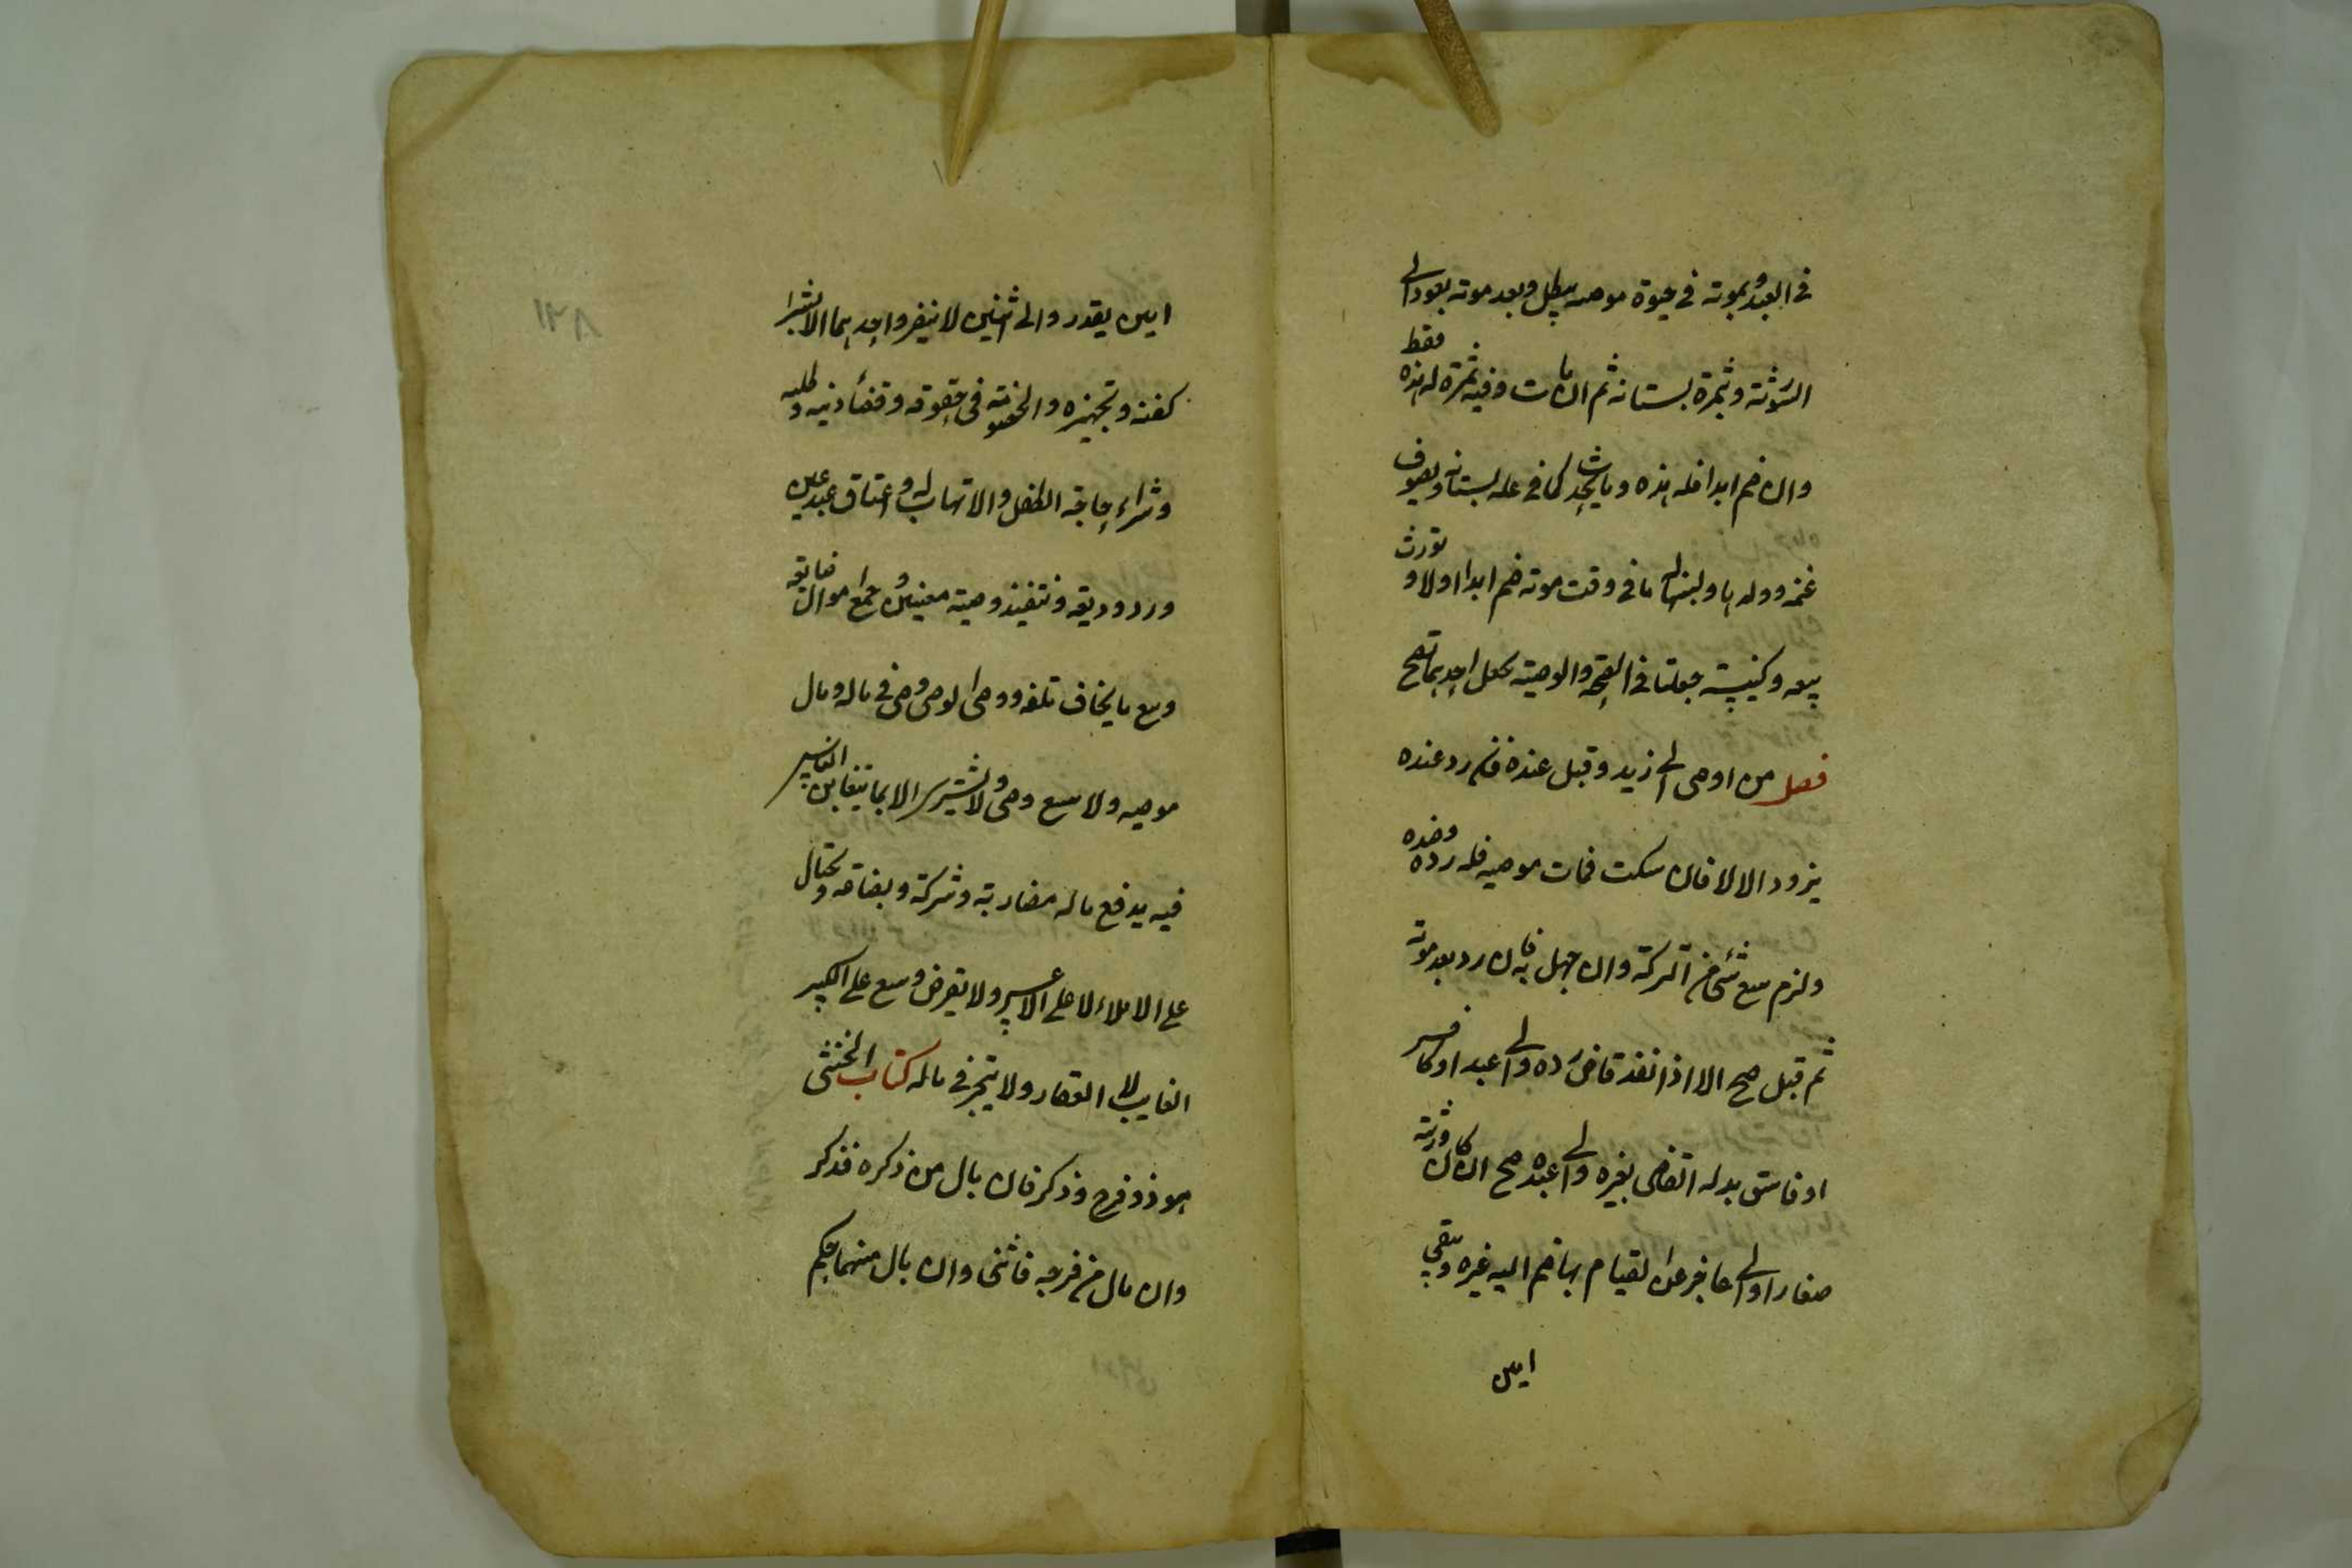 في العبد وبموته في حيوة موصيه يبطل وبعد موته يعود الى
الورثة وبثمرة بستانه ثم ان مات وفيه ثمرة له هذه فقط
وان ضم ابدا فله هذه وما يحدث كما في غلة بستانه وبصوف
غنمه وولدها ولبنها له ما في وقت موته ضم ابدا اولا وتورث
بيعة وكنيسة جعلتا في الصحة والوصية بجعل احدهما تصح
فصل من اوصى الى زيد وقبل عنده فان رد عنده
يرد والا لا فان سكت فمات موصيه فله رده وضده
ولزم ببيع شئ من التركة وان جهل به فان رد بعد موته
ثم قبل صح الا اذا نفذ قاض رده والى عبد او كافر
او فاسق بدله القاضي بغيره والى عبده صح ان كان ورثته
صغارا والى عاجز عن القيام بها ضم اليه غيره ويبقى
امين
امين يقدر والى اثنين لا ينفرد احدهما الا بشراء
كفنه وتجهيزه والخصومة في حقوقه وقضاء دينه وطلبه
وشراء حاجة الطفل والاتهاب له واعتاق عبد عين
ورد وديعة وتنفيذ وصية معينين وجمع اموال ضايعة
وبيع ما يخاف تلفه ووصي الوصي وصي في ماله ومال
موصيه ولا يبيع وصي ولا يشتري الا بما يتغابن الناس
فيه يدفع ماله مضاربة وشركة وبضاعة ويحتال
على الاملاء لا على الاعسر ولا يقرض ويبيع على الكبير
الغايب الا العقار ولا يتجر في ماله كتاب الخنثى
هو ذو فرج وذكر فان بال من ذكره فذكر
وان بال من فرجه فانثى وان بال منهما حكم
١٢٨